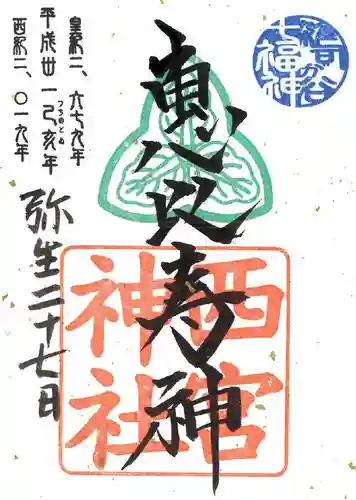 皇紀二、六七九年
平成廿一己亥年
つちのとゐ
西紀二、〇一九年
弥生二十七日
恵比寿神
西宮神社
七福神